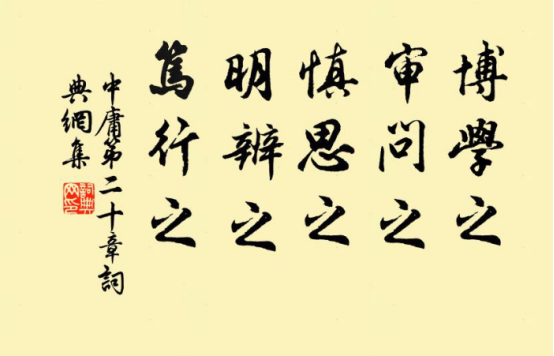 博學之
审問之
慎思之
明辨之
篤行之
中庸第二十章詞
典網集
詞典網印